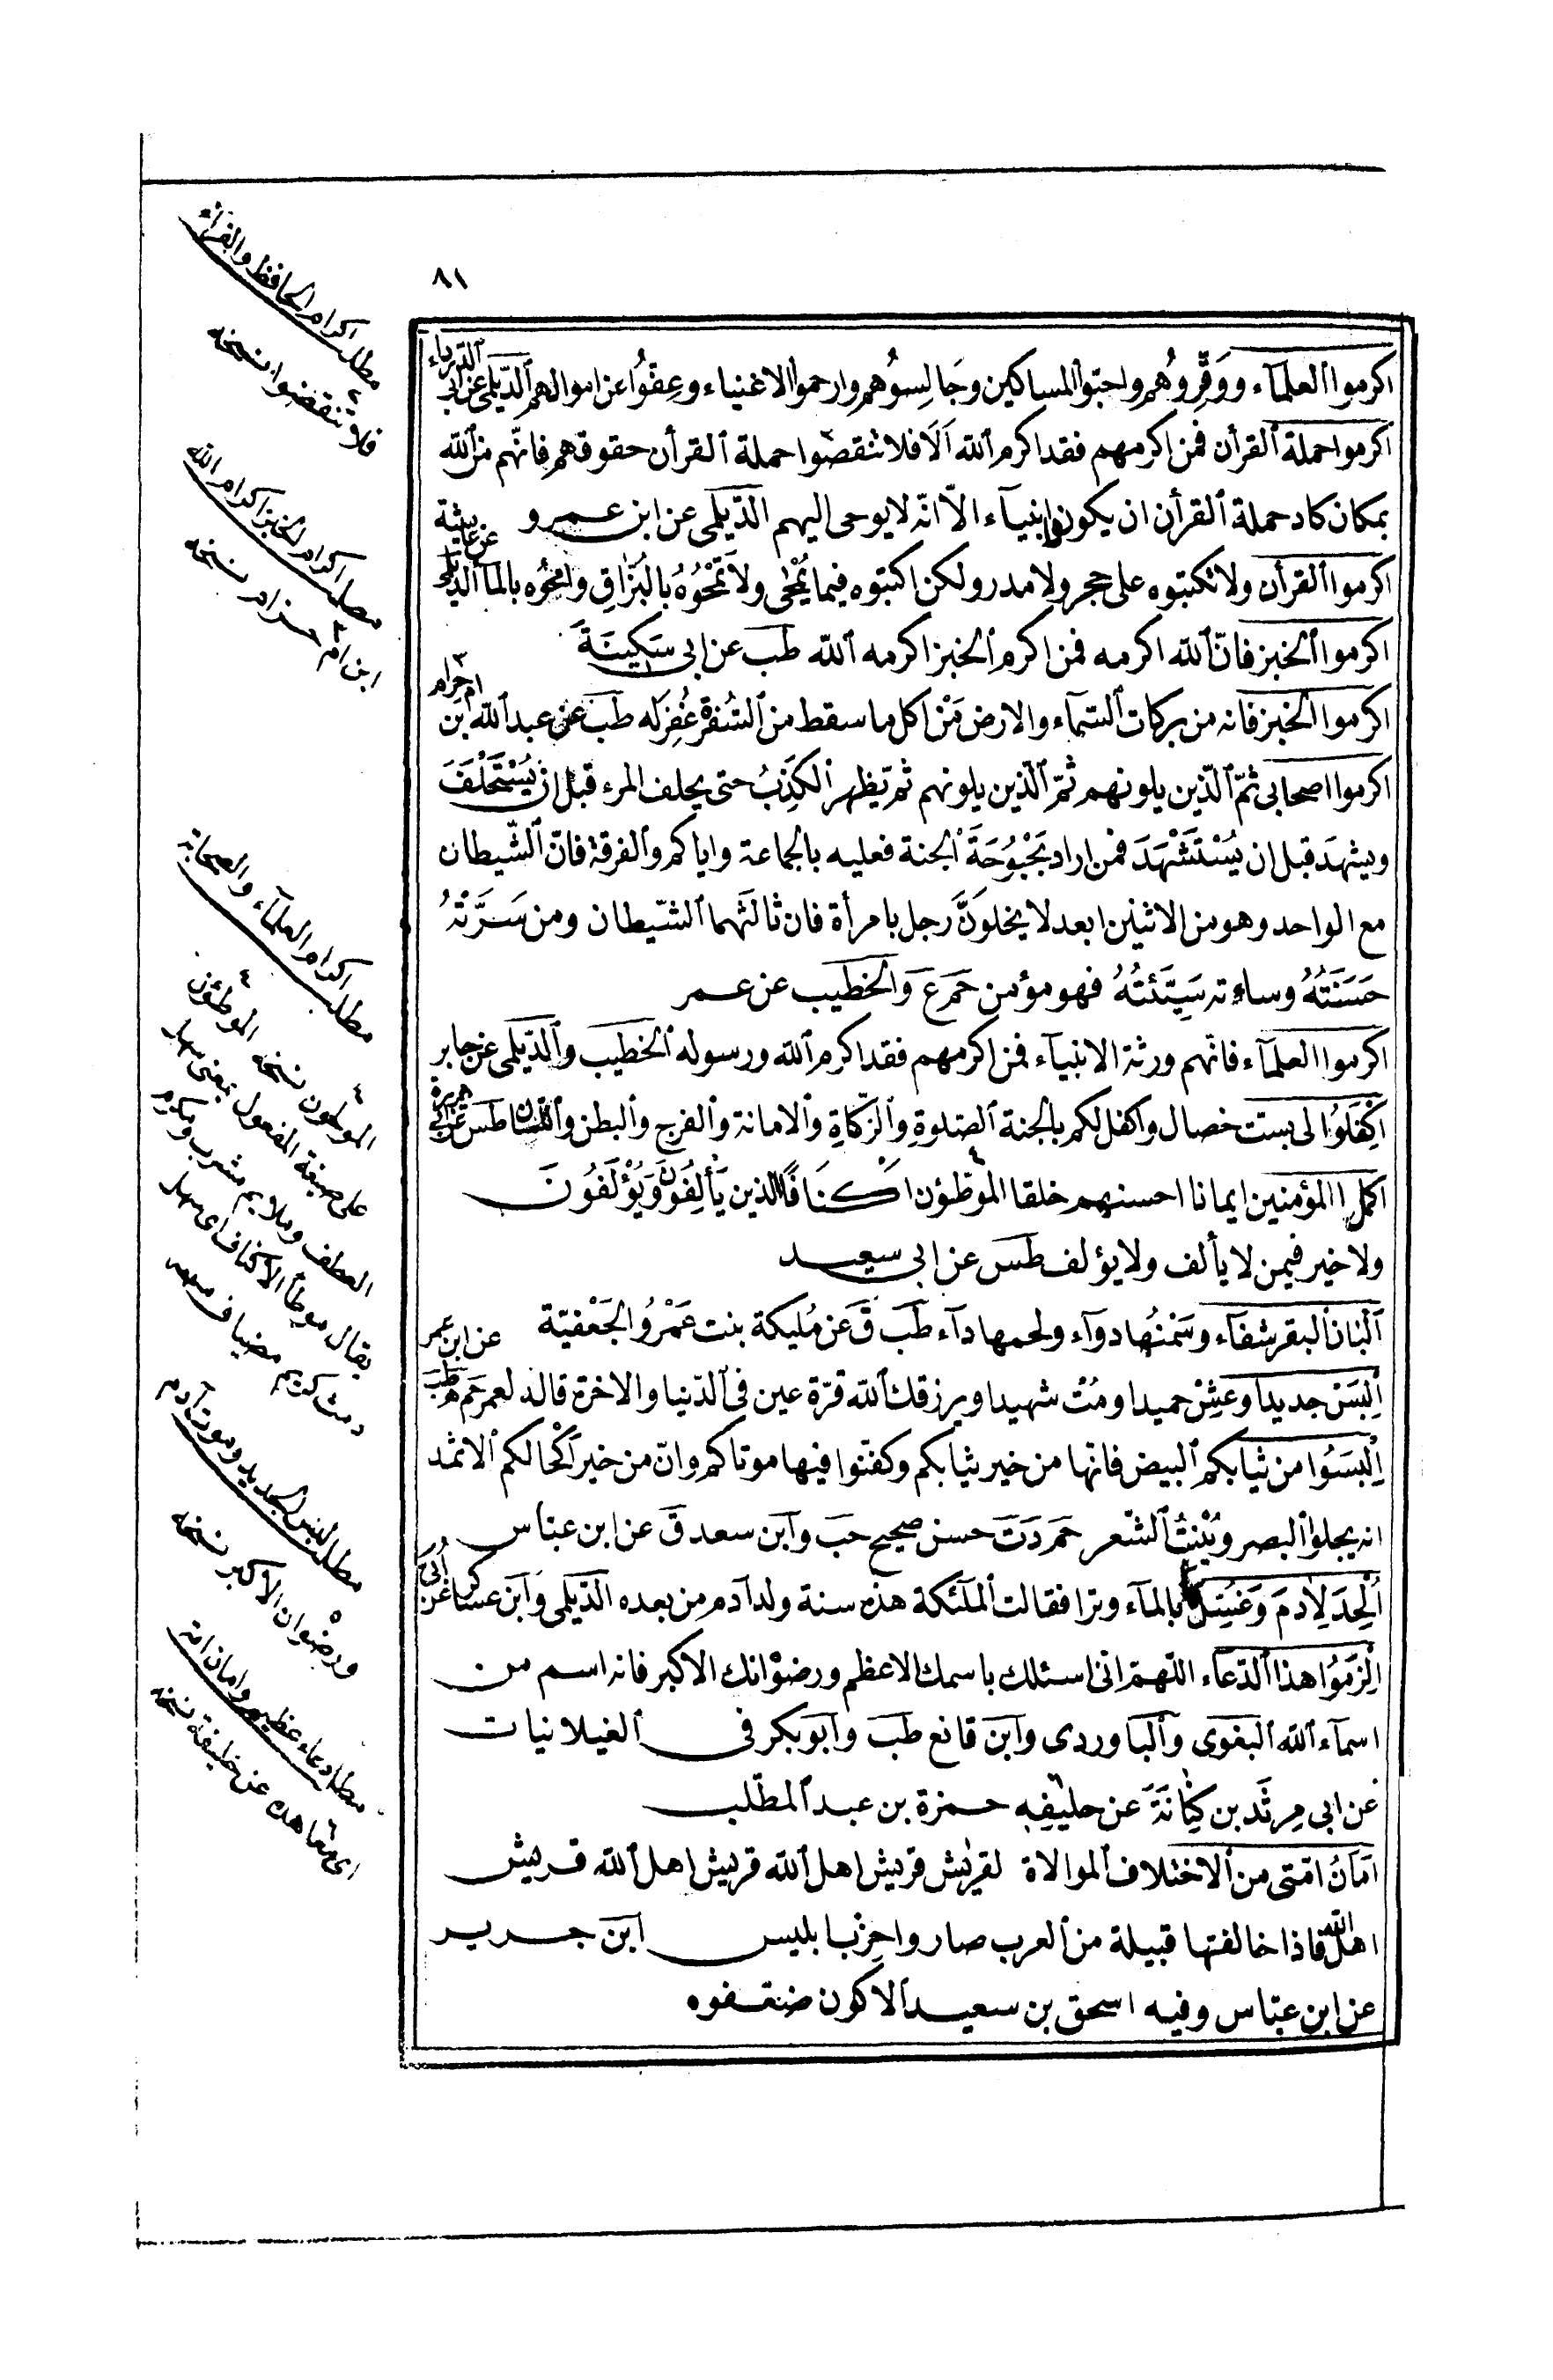 ٨١
اكرموا العلمآء ووَقِّرُوهُم واحبّوا المساكين وَجَالِسوُهم وارحموا الاغنياء وعِفّوُا عن اموالهم الدّيلمى عن ابى الدّرداء
اكرموا حملة القرأن فمن اكرمهم فقد اكرم الله اَلَا فلا تنقصّوا حملة القرأن حقوقهم فانّهم من الله
بمكان كاد حملة القرأن ان يكونوا انبيآء الاّ انّه لا يوحى اليهم الدّيلمى عن ابن عمرو
اكرموا القرأن ولا تكتبوه على حجر ولا مدر ولكن اكتبوه فيما يُمْحٰى ولا تَمْحُوُهُ بِالْبُزَاقِ وامْحُوُه بالمآ الديلمى عن عايشة
اكرموا الخبز فانّ الله اكرمه فمن اكرم الخبز اكرمه الله طب عن ابى سَكِينَةَ
اكرموا الخبز فانه من بركات السّمآء والارض مَنْ اكل ما سقط من السُفرة غُفِرَ له طب عن عبد الله ابن ام حرام
اكرموا اصحابى ثمّ الّذين يلونهم ثمّ الّذين يلونهم ثم يَظهر الكَذِبُ حتى يحلف المرء قبل ان يُسْتَحْلَفَ
ويشهدَ قبل ان يُسْتَشْهَدَ فمن اراد بَحْبُوُحَةَ الجنة فعليه بالجماعة واياكم والفرقة فانّ الشّيطان
مع الواحد وهو من الاثنين ابعد لا يخلونَّ رجل بامرأة فان ثالثَهما الشّيطان ومن سَرَّتْهُ
حَسَنَتُهُ وساءته سَيِّئَتُهُ فهو مؤمن حَم عَ والخطيب عن عمر
اكرموا العلمآء فانّهم ورثة الانبيآء فمن اكرمهم فقد اكرم الله ورسوله الخطيب والدّيلمى عن جابر
اكفَلوُا لى بست خصال واكفل لكم بالجنة الصّلوةِ والزّكاةِ والامانة والفرج والبطن واللسان طس عن ابى هريرة
اكمل المؤمنين ايمانا احسنهم خلقا الموطّؤن اكنَافًا الّذين يَأْلِفُونَ وَيُؤْلَفُونَ
ولا خير فيمن لا يألف ولا يؤلف طس عن ابى سعيد
اَلْبَانُ البقر شفآء وسَمْنُهَا دوآء ولحمها دآء طَبَ قَ عن مُليكة بنت عَمْرُو الجَعْفيّة
اِلْبَسْ جديدا وعِشْ حميدا ومُتْ شهيدا ويرزقك الله قرّة عين فى الدّنيا والاخرة قاله لعمر حَم هَ طب عن ابن عمر
اِلْبَسَوُا من ثيابكم البيض فانّها من خير ثيابكم وكفّنوا فيها موتاكم وانّ من خير اَكْحالكم الاثمد
انه يجلو البصر ويُنْبِتُ الشّعر حَم دَتَ حسن صحيح حبَ وابن سعد ق عن ابن عبّاس
اُلْحِدَ لِاٰدمَ وَغُسِّلَ بالمآء وترا فقالت الملٰئكة هذه سنة ولد آدم من بعده الدّيلمى وَابن عساكر عن اُبَىّ
اِلزَموُا هذا الدّعاء اللّهمّ انّى اسئلك باسمك الاعظم ورضوْانك الاكبر فانه اسم من
اسمآء الله البغوى والباوردى وابن قانع طب وابو بكر فى الغيلانيات
عن ابى مِرثَد بن كِنَانَةَ عن حليفِه حمزة بن عبد المطّلب
اَمَانُ امّتى من الاختلاف الموالاة لقريش قريش اهل الله قريش اهل الله قريش
اهل الله فاذا خالفتها قبيلة من العرب صاروا حِزْبَ ابليس ابن جرير
عن ابن عبّاس وفيه اسحق بن سعيد الاكون ضعّفوه
مطلب اكرام الحافظ والقرآء
فلا تنقضوا نسخه
مطلب اكرام الخبز اكرام الله
ابن ام حزام نسخه
مطلب اكرام العلمآء والصحابة
الموطون نسخه الموطئون
على صيغة المفعول بمعنى سهل
يقال موطأ الاكناف اى سهل
دمث كريم مضياف
مطلب لبس الجديد وموت آدم
ورضوان الاكبر نسخه
مطلب دعاء عظيم وامان امة
اى معاهده عن خليفة نسخه